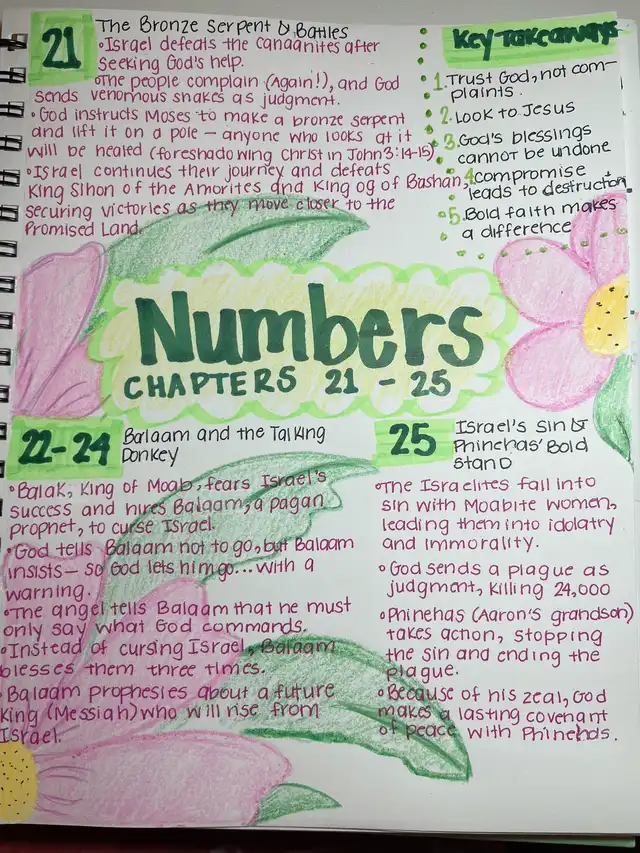 21
The Bronze Serpent & Battles
•Israel defeats the Canaanites after
seeking God's help.
•The people complain (Again!), and God
sends venomous snakes as judgment.
•God instructs Moses to make a bronze serpent
and lift it on a pole - anyone who looks at it
will be healed (foreshadowing Christ in John 3:14-15)
•Israel continues their journey and defeats
King Sihon of the Amorites and King Og of Bashan,
securing victories as they move closer to the
Promised Land.
Key Takeaways
1. Trust God, not com-
plaints.
2. Look to Jesus
3. God's blessings
cannot be undone
4. compromise
leads to destruction
5. Bold faith makes
a difference
Numbers
CHAPTERS 21 - 25
22-24
Balaam and the Talking
Donkey
•Balak, King of Moab, fears Israel's
success and hires Balaam, a pagan
prophet, to curse Israel.
•God tells Balaam not to go, but Balaam
insists - so God lets him go... with a
warning.
•The angel tells Balaam that he must
only say what God commands.
•Instead of cursing Israel, Balaam
blesses them three times.
•Balaam prophesies about a future
King (Messiah) who will rise from
Israel.
25
Israel's Sin &
Phinehas' Bold
Stand
•The Israelites fall into
sin with Moabite women,
leading them into idolatry
and immorality.
•God sends a plague as
judgment, killing 24,000
•Phinehas (Aaron's grandson)
takes action, stopping
the sin and ending the
plague.
•Because of his zeal, God
makes a lasting covenant
of peace with Phinehas.